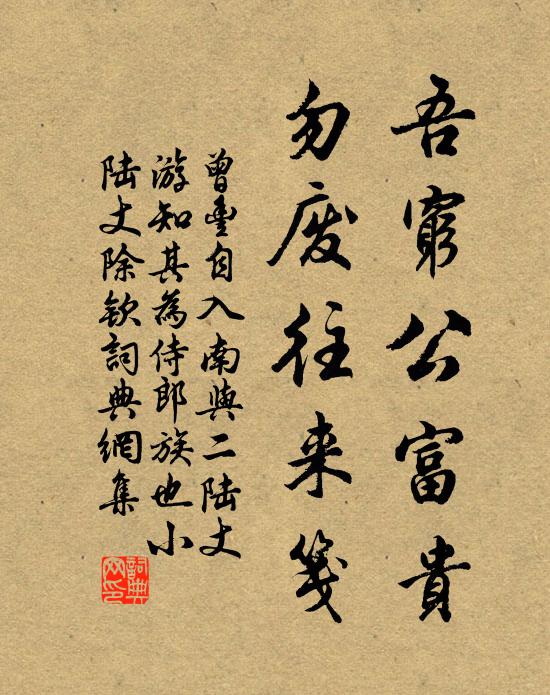 吾窮公富貴
勿废往来箋
曾豊自入南與二陆丈
游知其為侍郎族也小
陆丈除欽詞典網集
詞典
网印